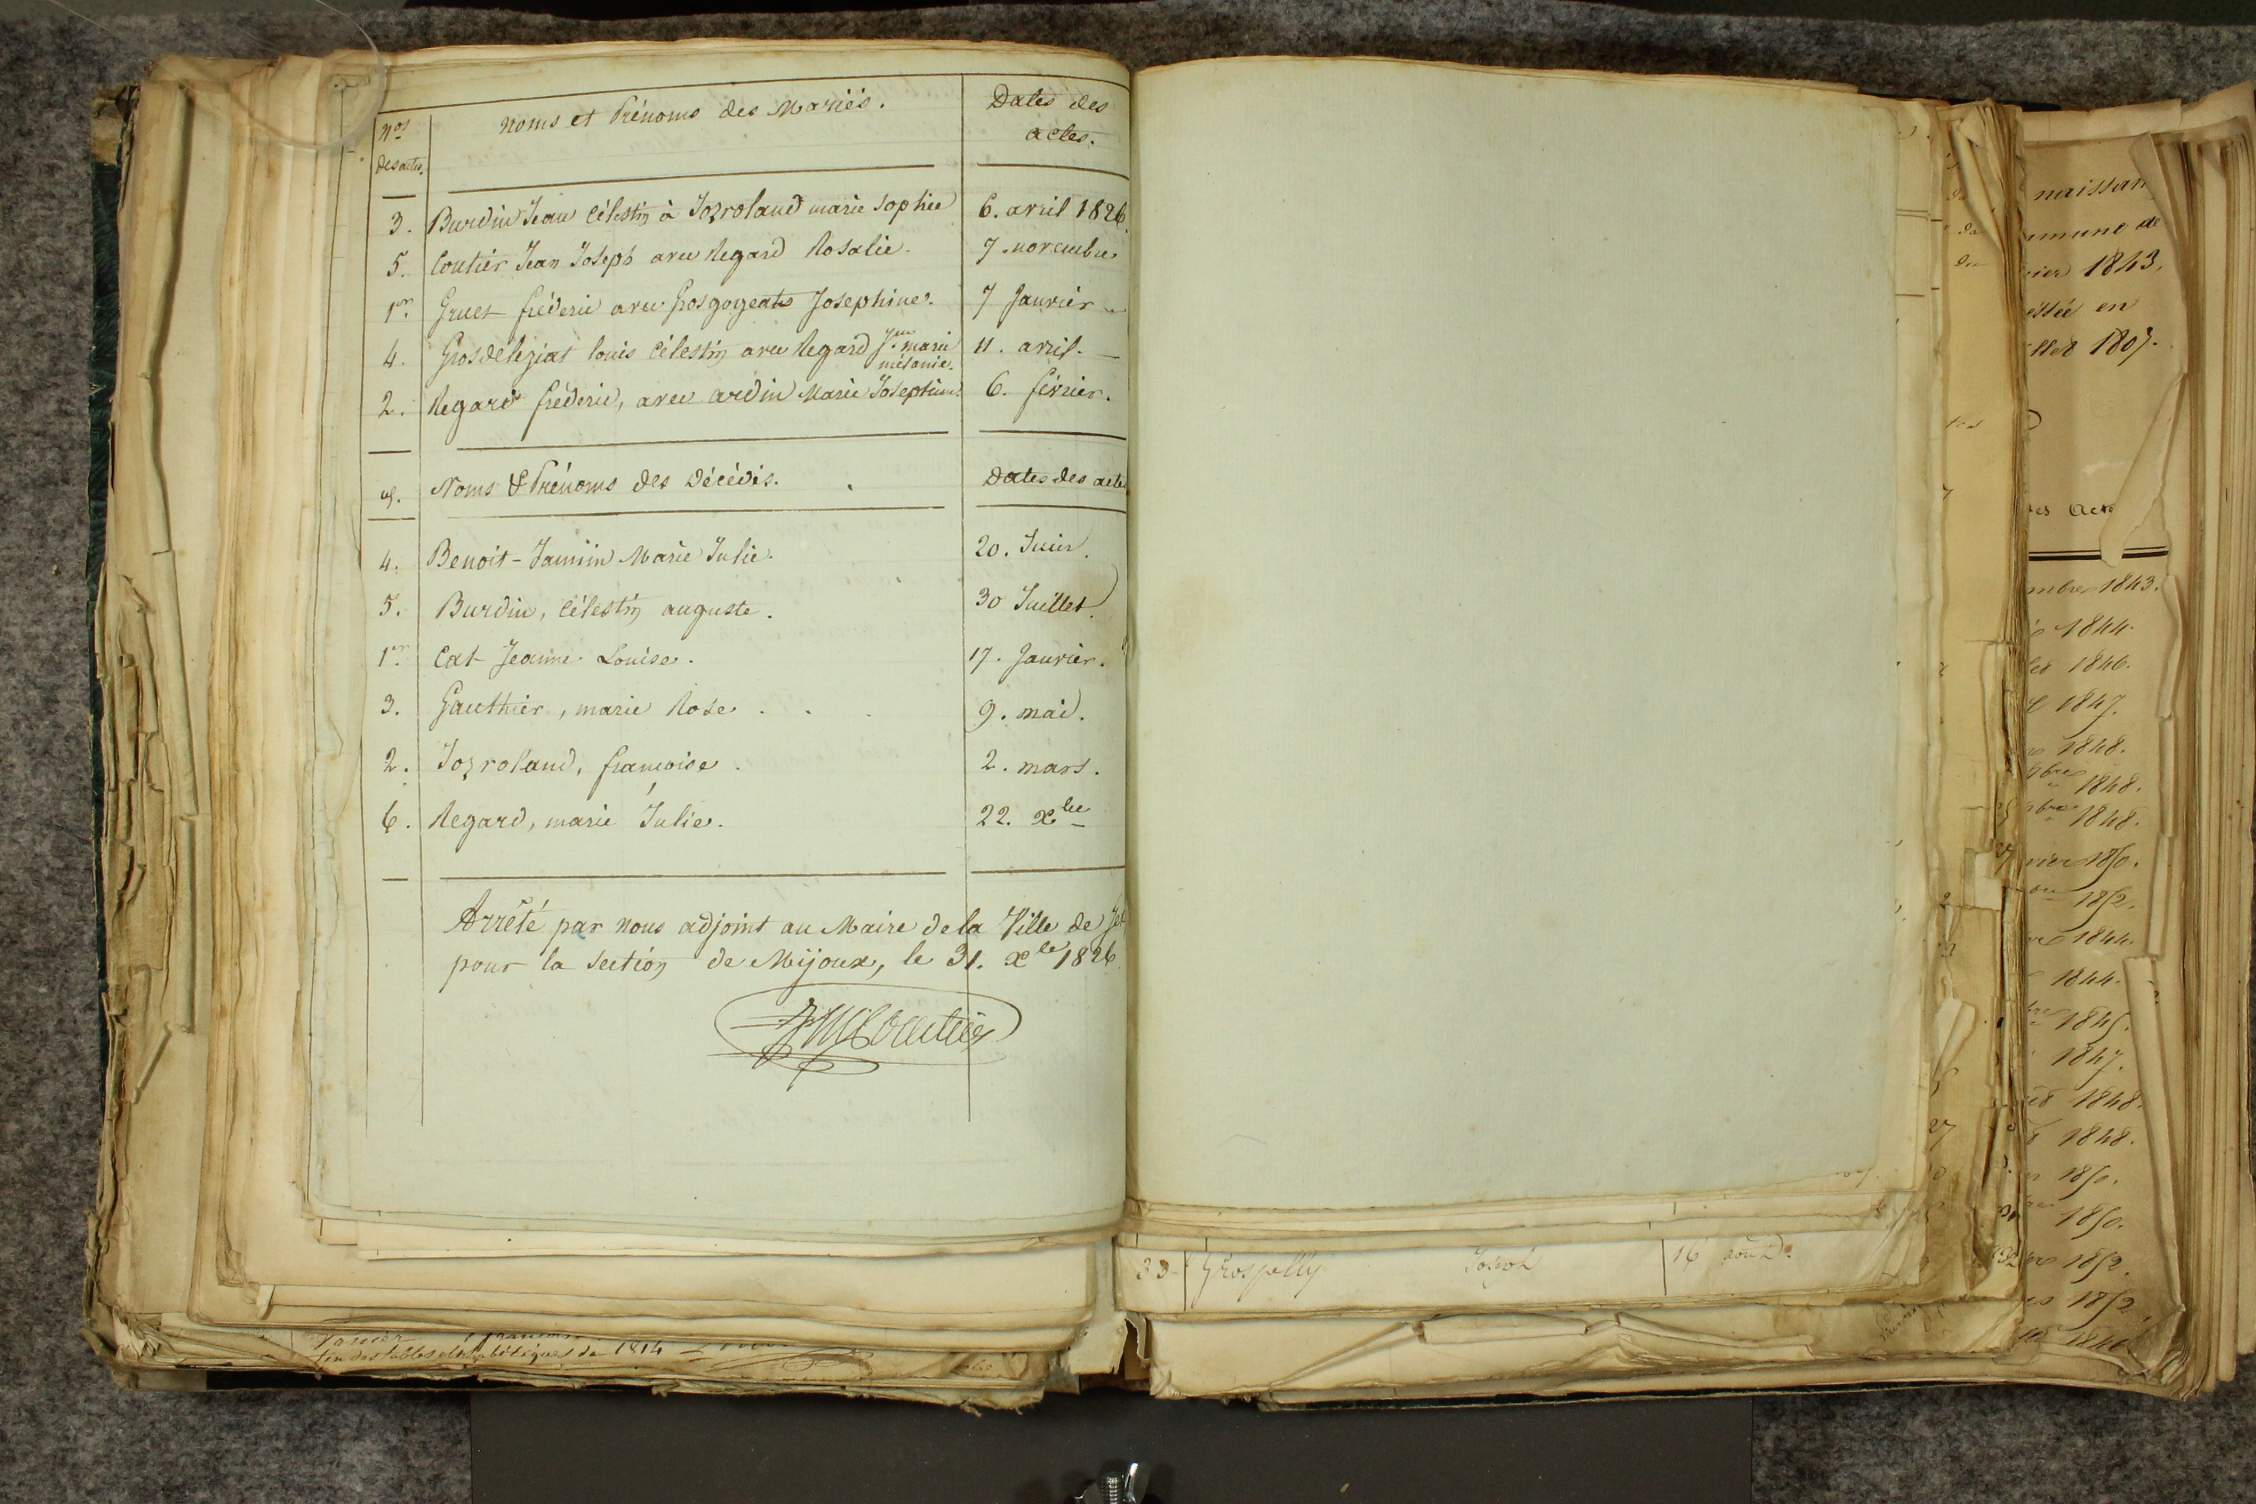 Nos des actes. Noms et Prénoms des Mariés. Dates des actes.
3. Burdin Jean Célestin à Jozroland marie Sophie 6. avril 1826.
5. Coutier Jean Joseph avec Regard Rosalie. 7. novembre
1er Gruet fréderic avec Grosgogeat Josephine. 7 Janvier
4. Grosdelégiat louis Célestin avec Regard Jne marie mélanie. 11. avril.
2. Regard fréderic, avec ardin Marie Josephine 6. février.
Noms & Prénoms des Décédés. Dates des actes
4. Benoit-Jannin Marie Julie. 20. Juin.
5. Burdin, Célestin auguste. 30 Juillet.
1er Cat Jeanne Louise. 17. Janvier.
3. Gauthier, marie Rose . . . 9. mai.
2. Jozroland, francoise. 2. mars.
6. Regard, marie Julie. 22. xbre
Arrêté par nous adjoint au Maire de la Ville de Gex
pour la Section de Mijoux, le 31. xbre 1826.
33 Grospelly Joseph 16
fin des tables alphabétiques de 1814
naissan
1843.
en
1807.
es Act
mbre 1843.
1844.
1846.
1847.
1848.
1848.
1848.
1850.
1852.
1844.
1844.
1845.
1847.
1848.
1848.
1850.
1850.
1852.
1852